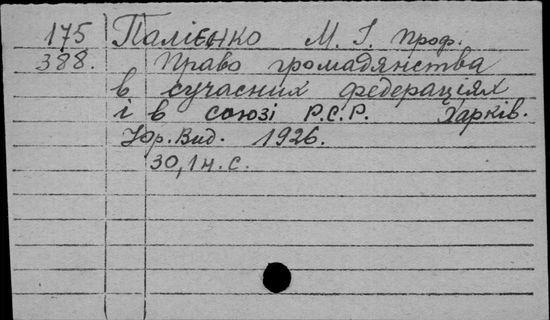 175 Палієнко М. І. проф.
388. Право громадянства
в сучасних федераціях
і в союзі Р.С.Р. Харків.
Юр. Вид. 1926.
30,1н.с.